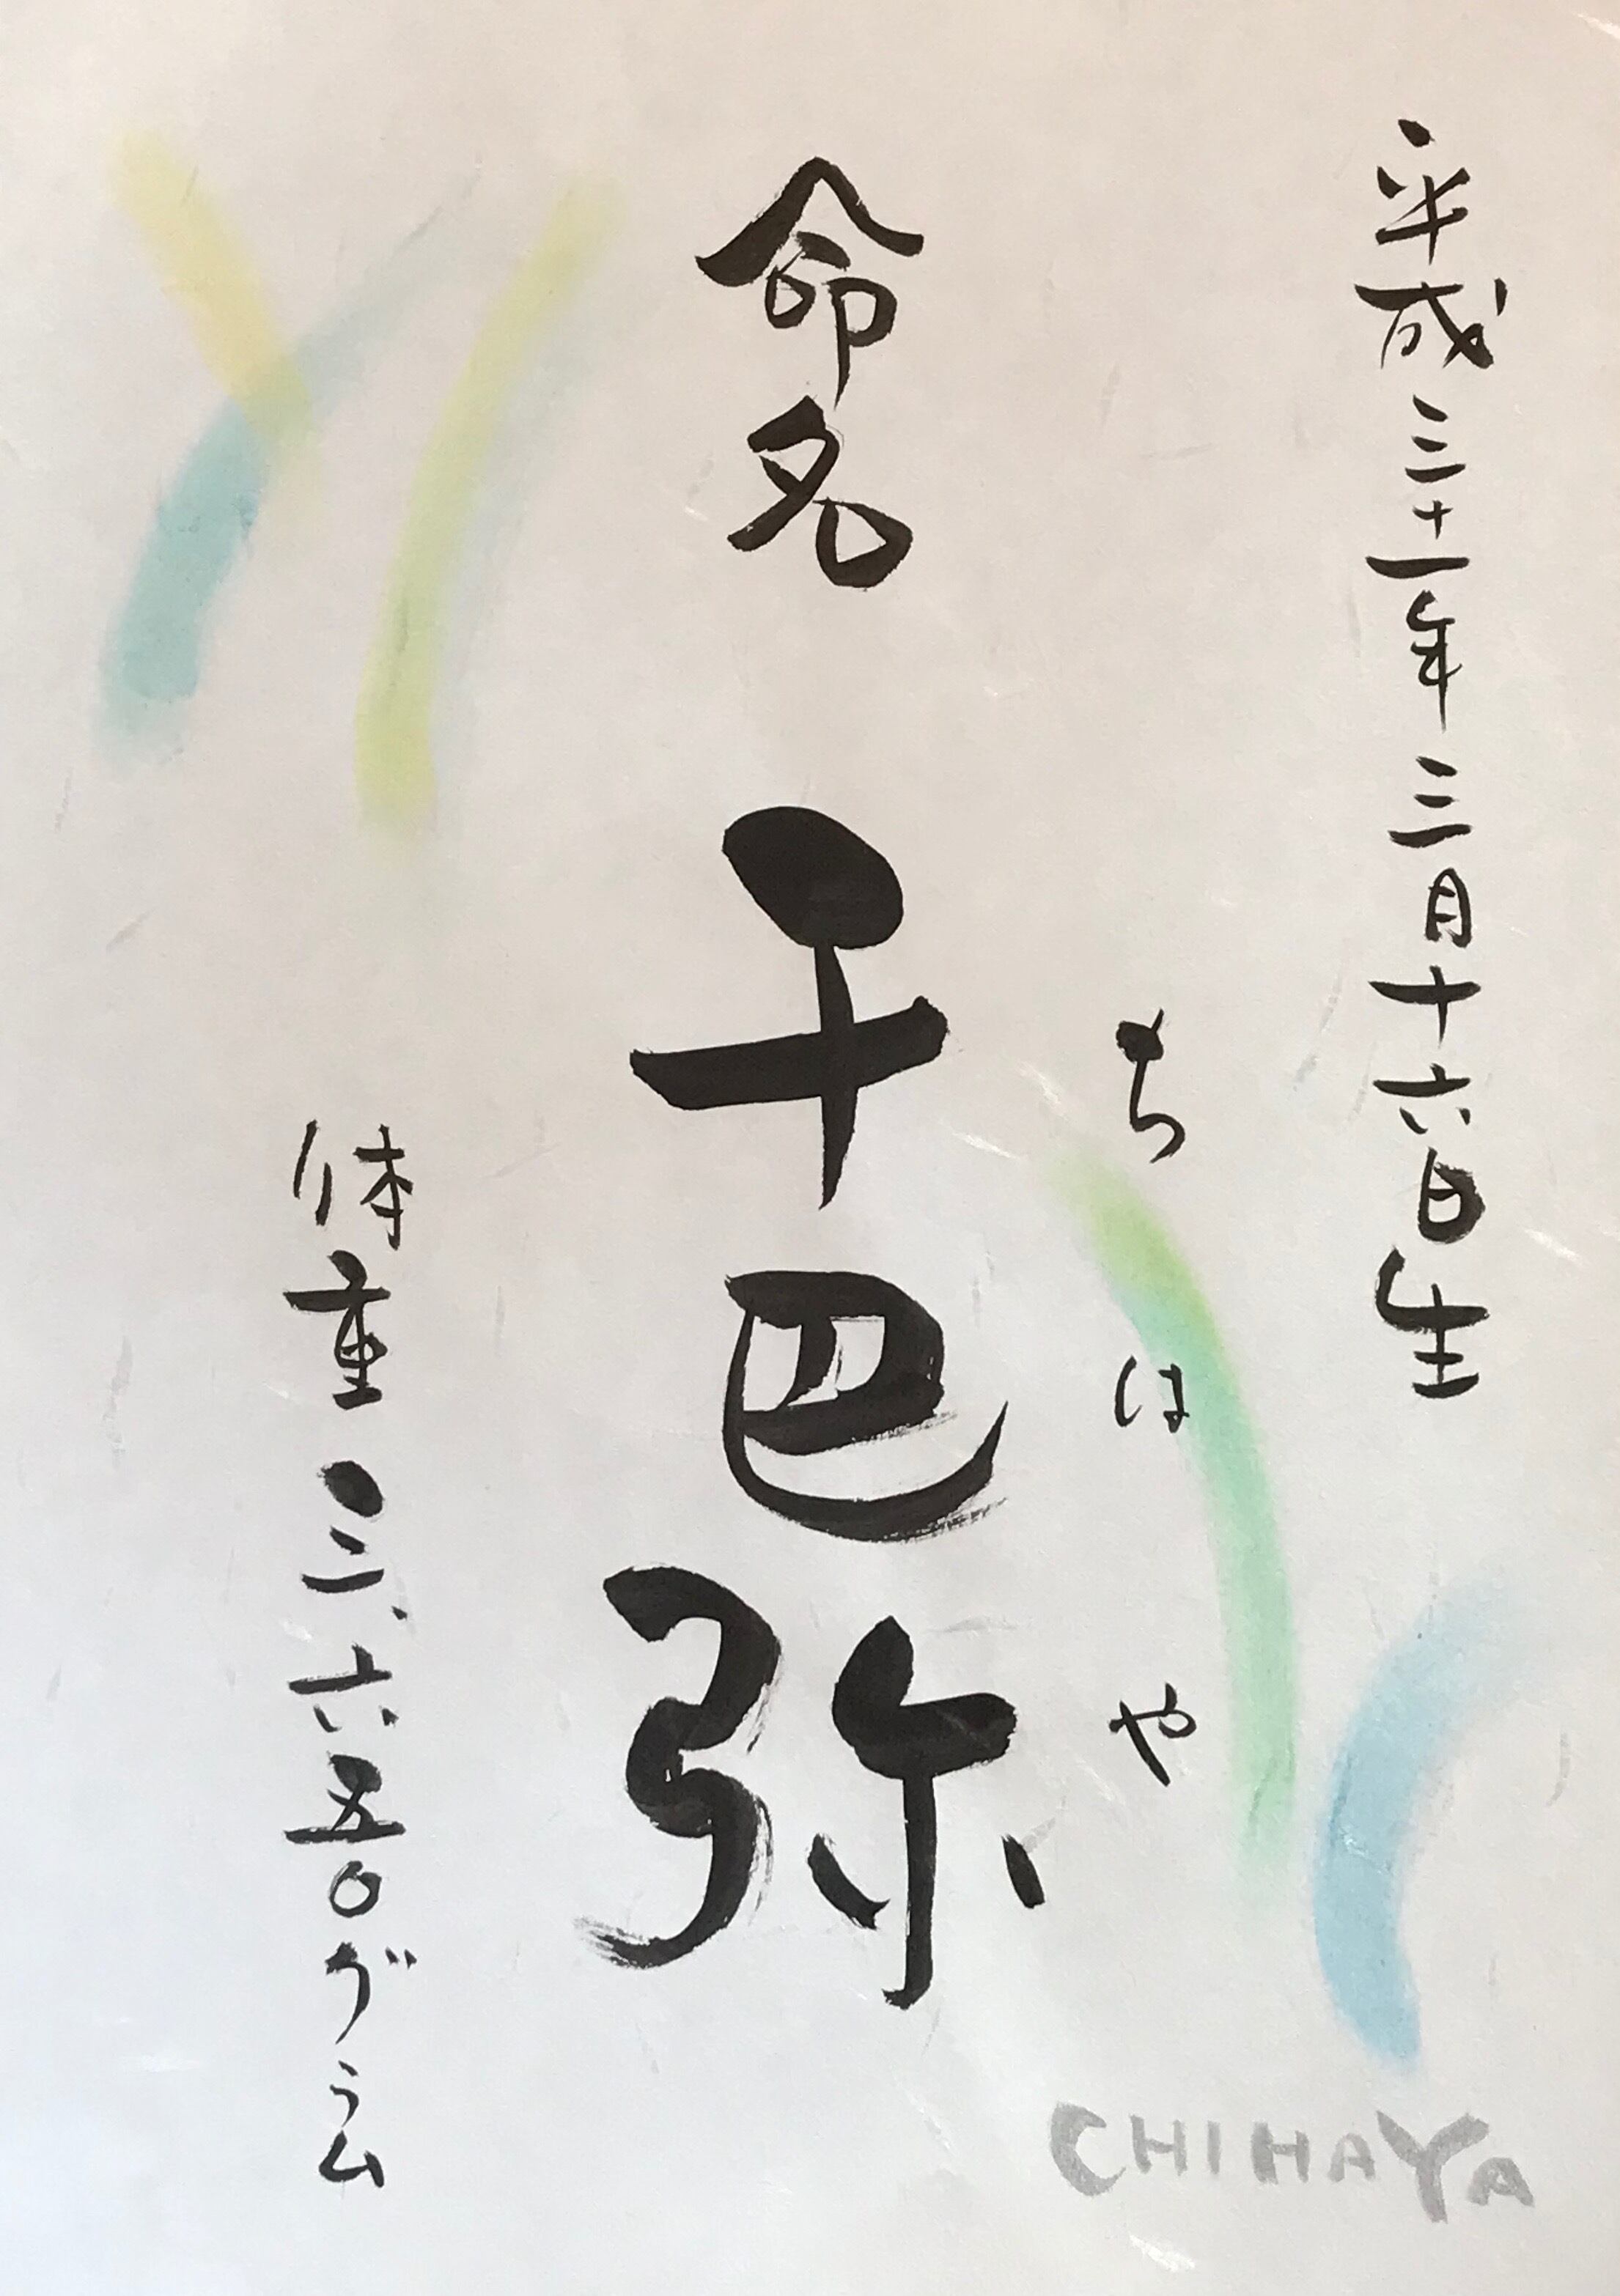 平成三十一年三月十六日生
ちはや
命名 千巴弥
体重 三、六五〇グラム
CHIHAYA